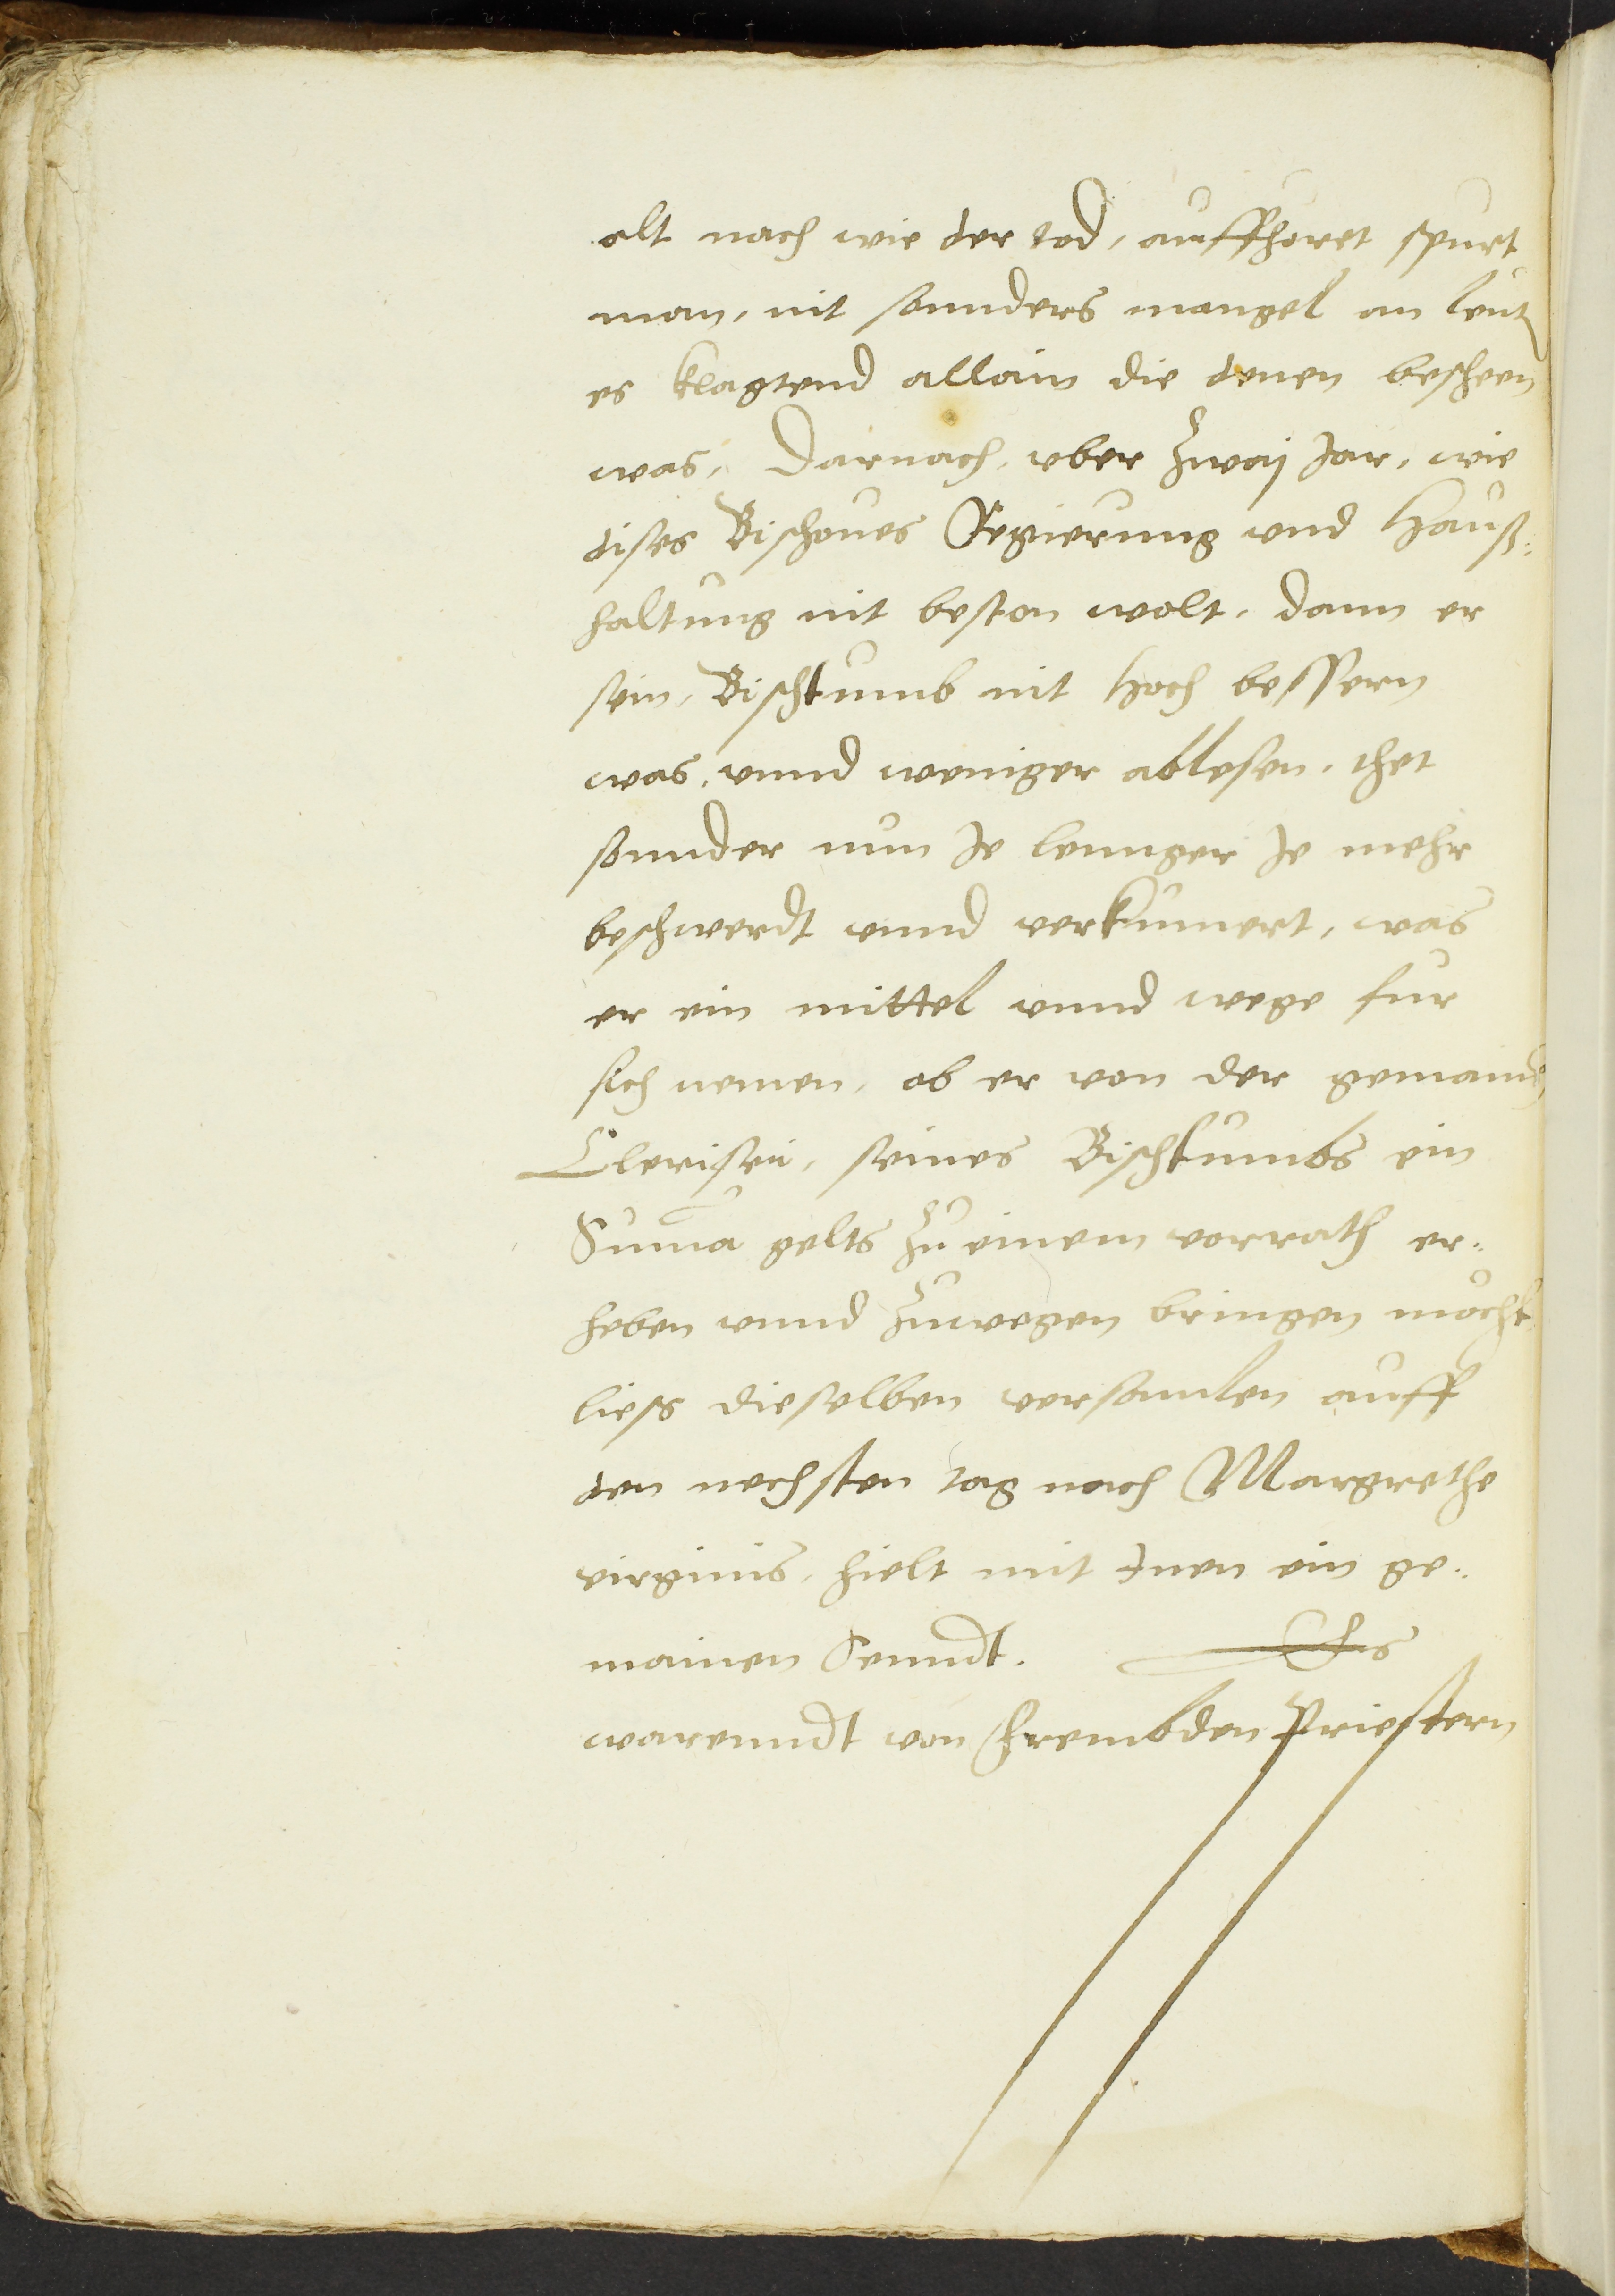 alt nach wie der tod, auffhoret spurt
man, nit sonnders mangel an leut
es klagtend allain die denen bescheen
was, Darnach, vber zway Jar, wie
dises Bischoues Regierung vnd Hauß¬
haltung nit beston wolt, dann er
sein, Bischtumb nit hoch bessern
was, vnnd weniger ablesen, thet
sonnder nun Je lennger Je mehr
beschwerdt vnnd verkummert, was
er ein mittel vnnd wege fur
sich nemen, ob er von der gemainen
Clerisei, seines Bischtumbs ein
Suma gelts zu einem vorrath er¬
heben vnnd zuwegen bringen mocht,
liess dieselben versamlen auff
den nechsten tag nach Margrethe
virginis, hielt mit Jnen ein ge¬
mainen Senndt. Es
warenndt von frembden Priestern